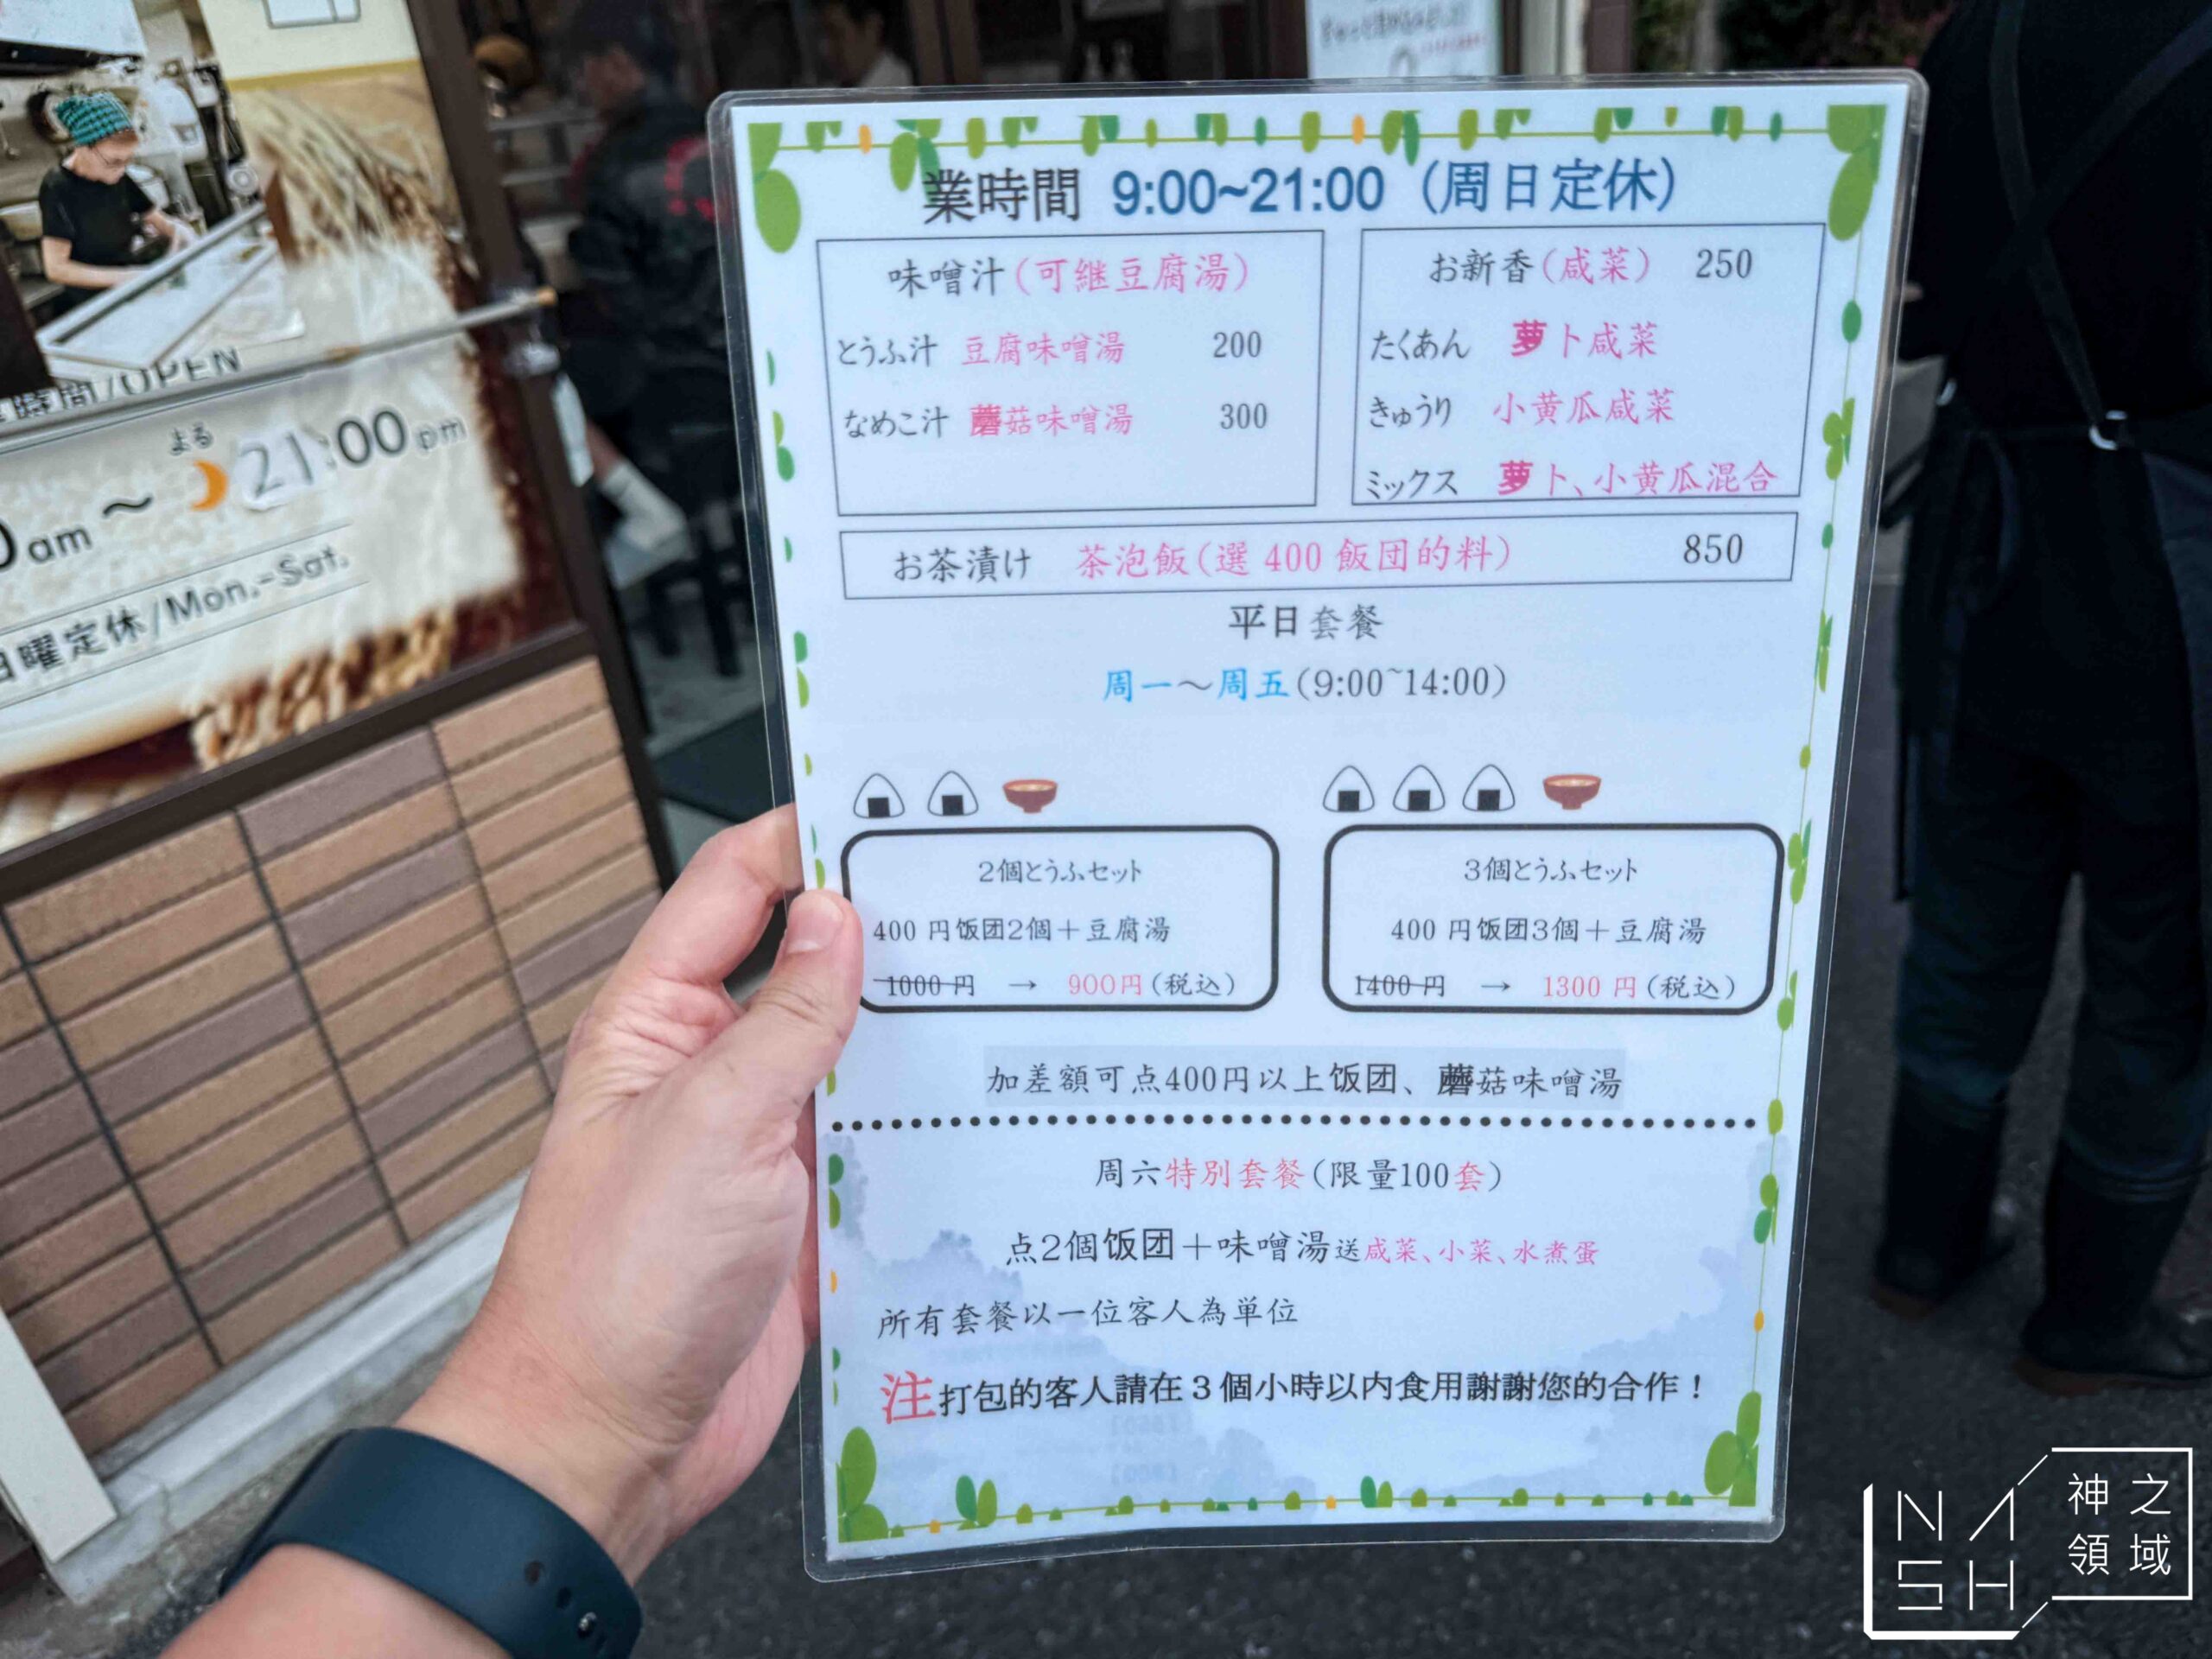 時間/OPEN
よる
am ～ 21:00 pm
日曜定休/Mon.-Sat.
業時間 9:00~21:00 (周日定休)
味噌汁(可継豆腐湯)
とうふ汁 豆腐味噌湯 200
なめこ汁 蘑菇味噌湯 300
お新香(咸菜) 250
たくあん 萝卜咸菜
きゅうり 小黄瓜咸菜
ミックス 萝卜、小黄瓜混合
お茶漬け 茶泡飯(選 400 飯団的料) 850
平日套餐
周一～周五(9:00~14:00)
2個とうふセット
400 円饭团2個＋豆腐湯
1000 円 → 900円(税込)
3個とうふセット
400 円饭团3個＋豆腐湯
1400 円 → 1300 円(税込)
加差額可点400円以上饭团、蘑菇味噌湯
周六特別套餐(限量100套)
点2個饭团＋味噌湯送咸菜、小菜、水煮蛋
所有套餐以一位客人為単位
注打包的客人請在３個小時以内食用謝謝您的合作！
NASH
神之領域